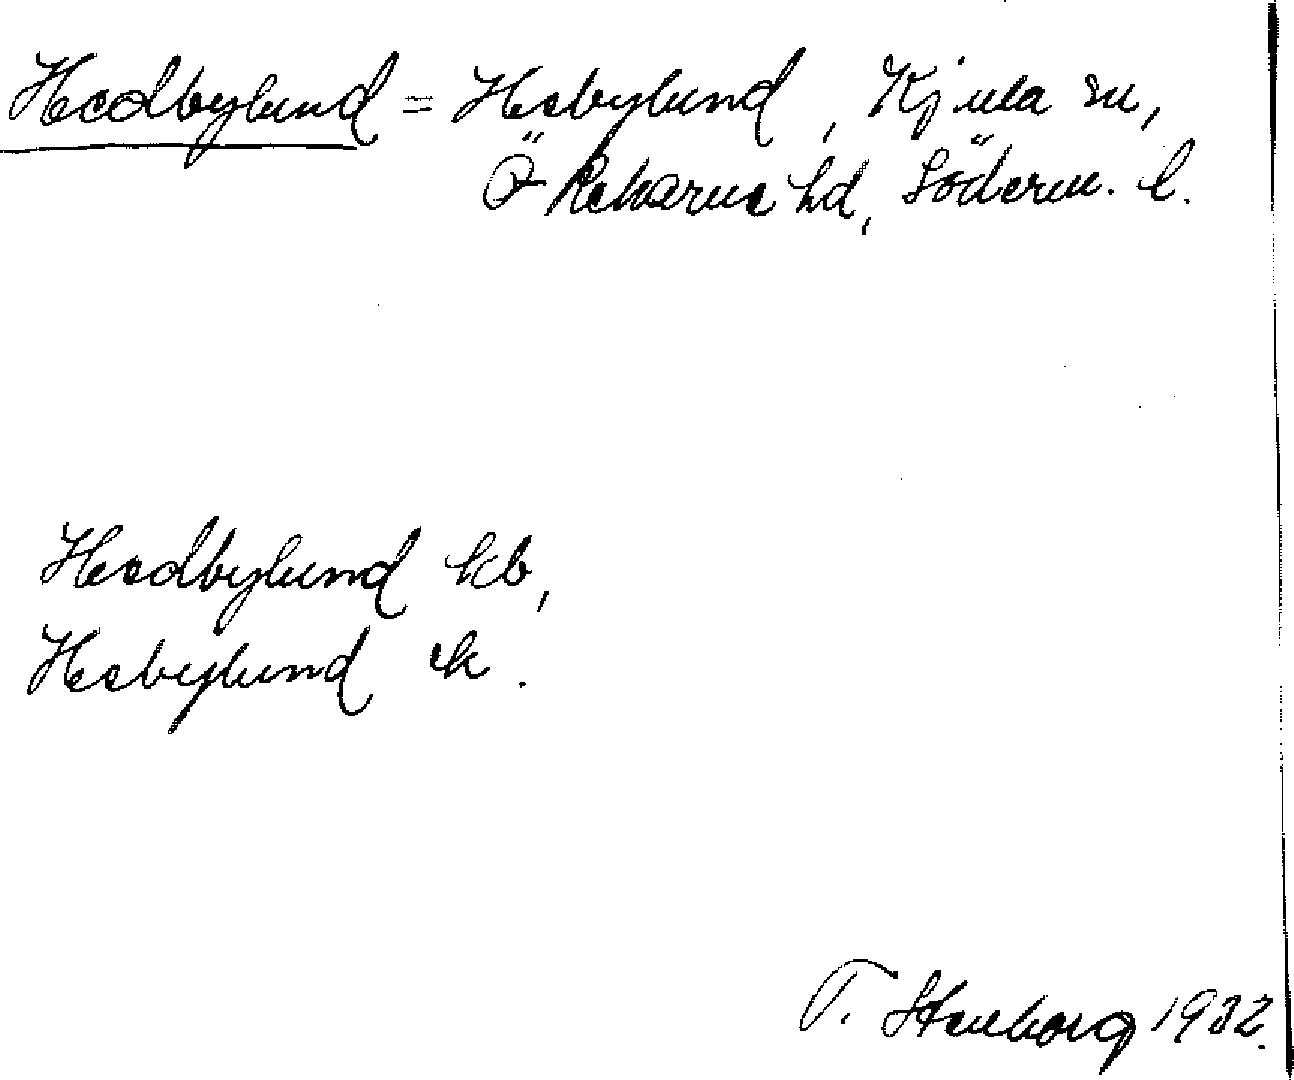 Hedbylund = Hebylund, Kjula sn,
Ö Rekarne hd, Söderm. l.
Hedbylund kb,
Hebylund ek.
T. Stenborg 1932.